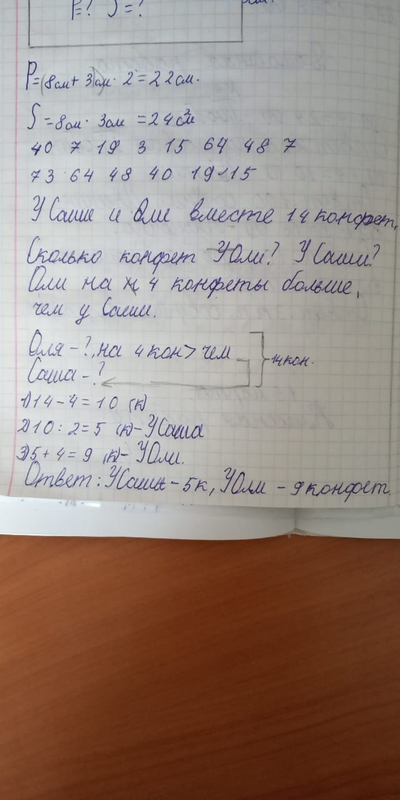 P=? S=?
P=(8см+3)см·2=22см.
S=8см·3см=24см²
40 7 19 3 15 64 48 7
73 64 48 40 19 15
У Саши и Оли вместе 14 конфет,
Сколько конфет У Оли? У Саши?
Оли на 4 конфеты больше,
чем у Саши.
Оля-?, на 4 кон> чем
Саша-? 14кон.
1)14-4=10 (к)
2)10:2=5 (к)-У Саша
3)5+4=9 (к)-У Оли.
Ответ: У Саши-5к, У Оли-9 конфет